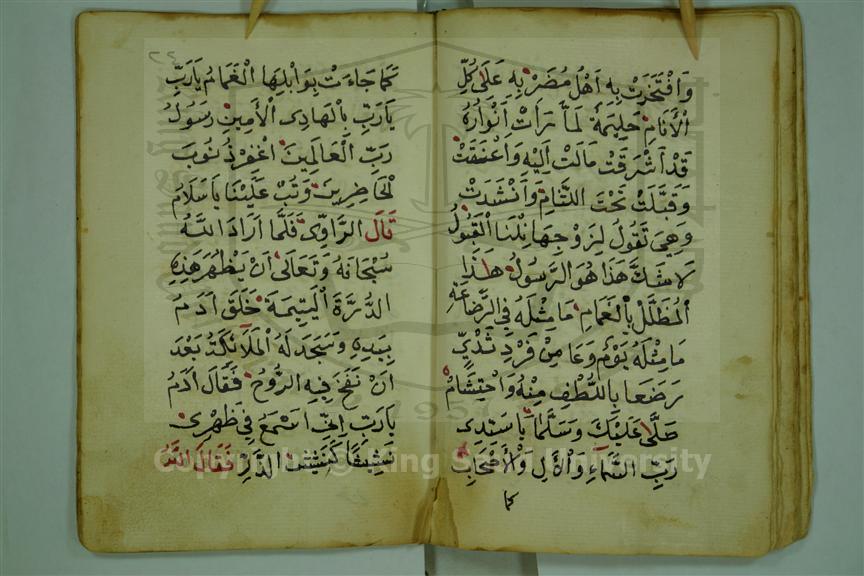 وَافْتَخَرَتْ بِهِ اَهْلُ مُضَرْ بِهِ عَلَى كُلِّ
الْأَنَامِ حَلِيمَةُ لَمَّا رَأَتْ اَنْوَارُهُ
قَدْ اَشْرَقَتْ مَالَتْ اِلَيْهِ وَاعْتَنَقَتْ
وَقَبَّلَتْ تَحْتَ اللِّثَامِ وَاَنْشَدَتْ
وَهِيَ تَقُولُ لِزَوْجِهَا نِلْنَا الْقَبُولُ
لَاشَكَّ هَذَا هُوَ الرَّسُولُ هَذَا
الْمُظَلَّلْ بِالْغَمَامِ مَا مِثْلَهُ فِي الرَّضَاعَةِ
مَا مِثْلَهُ يَوْمٌ وَعَا مِنْ فَرْدِ ثَدْيٍ
رَضَعَا بِاللُّطْفِ مِنْهُ وَاحْتِشَامْ
صَلَّى عَلَيْكَ وَسَلَّمَا يَا سَيِّدِى
رَبِّ السَّمَاءِ وَالْأٰلِ وَالْأَصْحَابِ
كما
٢٢
كَمَا جَاءَتْ بِوَابِلِهَا الْغَمَامُ يَارَبِّ
يَارَبِّ بِالْهَادِى الْأَمِينِ رَسُولُ
رَبِّ الْعَالَمِينَ اغْفِرْ ذُنُوبَ
الْحَاضِرِينَ وَتُبْ عَلَيْنَا يَا سَلَامُ
قَالَ الرَّاوِى فَلَمَّا اَرَادَ اللَّهُ
سُبْحَانَهُ وَتَعَالَى اَنْ يَظْهَرَ هَذِهِ
الدُّرَّةَ الْيَتِيمَةَ خَلَقَ اٰدَمُ
بِيَدِهِ وَسَجَدَ لَهُ الْمَلَائِكَةُ بَعْدَ
اَنْ نَفَخَ فِيهِ الرُّوْحُ فَقَالَ اٰدَمُ
يَارَبِّ اِنِّى اَسْمَعُ فِي ظَهْرِى
نَشِيشًا كَنَشِيشِ الذَّرِّ فَقَالَ اللَّهُ
Copyright © King Saud University
1957